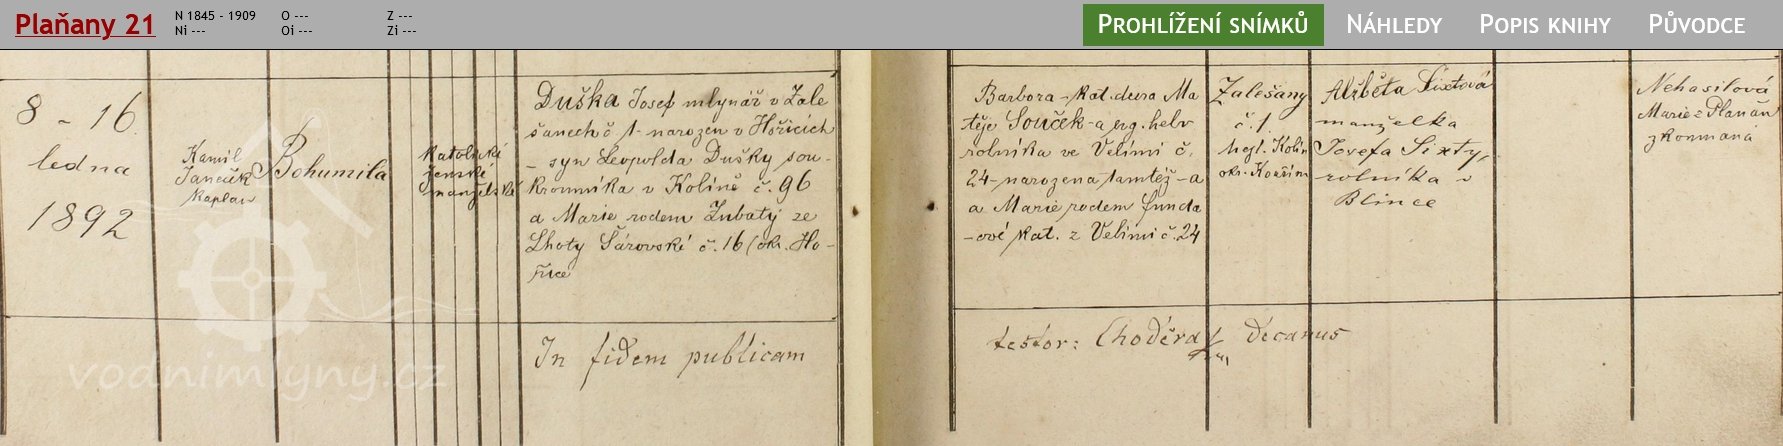 Plaňany 21
N 1845 - 1909
Ni ---
O ---
Oi ---
Z ---
Zi ---
Prohlížení snímků
Náhledy
Popis knihy
Původce
8 - 16.
ledna
1892
Kamil
Janeček
kaplan
Bohumila
katolické
ženské
manželské
Duška Josef mlynář v Zale
šanech č 1 - narozen v Hořicích
- syn Leopolda Dušky sou-
kromníka v Kolíně č. 96
a Marie rodem Zubatý ze
Lhoty Šárovské č. 16 (okr. Ho-
řice
In fidem publicam
Barbora - kat. dcera Ma
těje Souček - a evg. helv
rolníka ve Velimi č.
24 - narozena tamtéž - a
a Marie rodem Funda
-ové kat. z Velimi č. 24
Zalešany
č. 1
hejt. Kolín
okr. Kouřim
Alžběta Sixtová
manželka
Josefa Sixty,
rolníka v
Blince
Nehasilová
Marie z Plaňan
zkoumaná
testor: Choděra
Decanus
vodnimlyny.cz